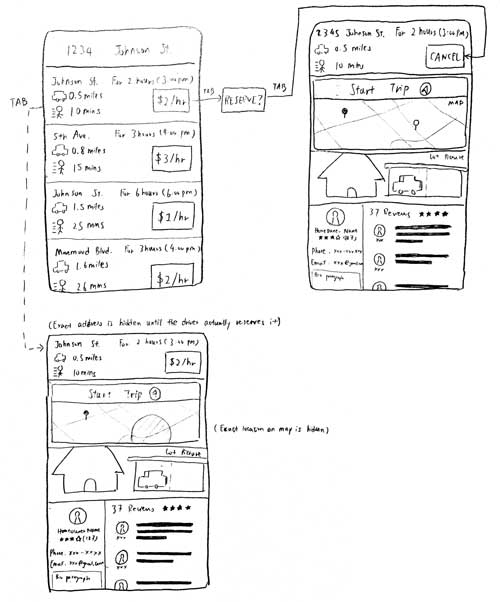 1234 Johnson St.
Johnson St. For 2 hours (3:00 pm)
0.5 miles
10 mins
$2/hr
5th Ave. For 3 hours (4:00 pm)
0.8 miles
15 mins
$3/hr
Johnson St. For 6 hours (6:00 pm)
1.5 miles
25 mins
$2/hr
Blvd. For 3 hours (4:00 pm)
1.6 miles
26 mins
$2/hr
TAB
TAB
RESERVE?
TAB
12345 Johnson St. For 2 hours (3:00 pm)
0.5 miles
10 mins
CANCEL
Start Trip
MAP
Lot
37 Reviews
Homeowner Name
(187)
Phone . xxx-xxxx
Email . xxx@gmail.com
Bio paragraph
xxx
xxx
(Exact address is hidden until the driver actually reserves it)
Johnson St. For 2 hours (3:00 pm)
0.5 miles
10 mins
$2/hr
Start Trip
(Exact location on map is hidden)
Lot
37 Reviews
Homeowner Name
(187)
Phone . xxx-xxxx
Email . xxx@gmail.com
Bio paragraph
xxx
xxx